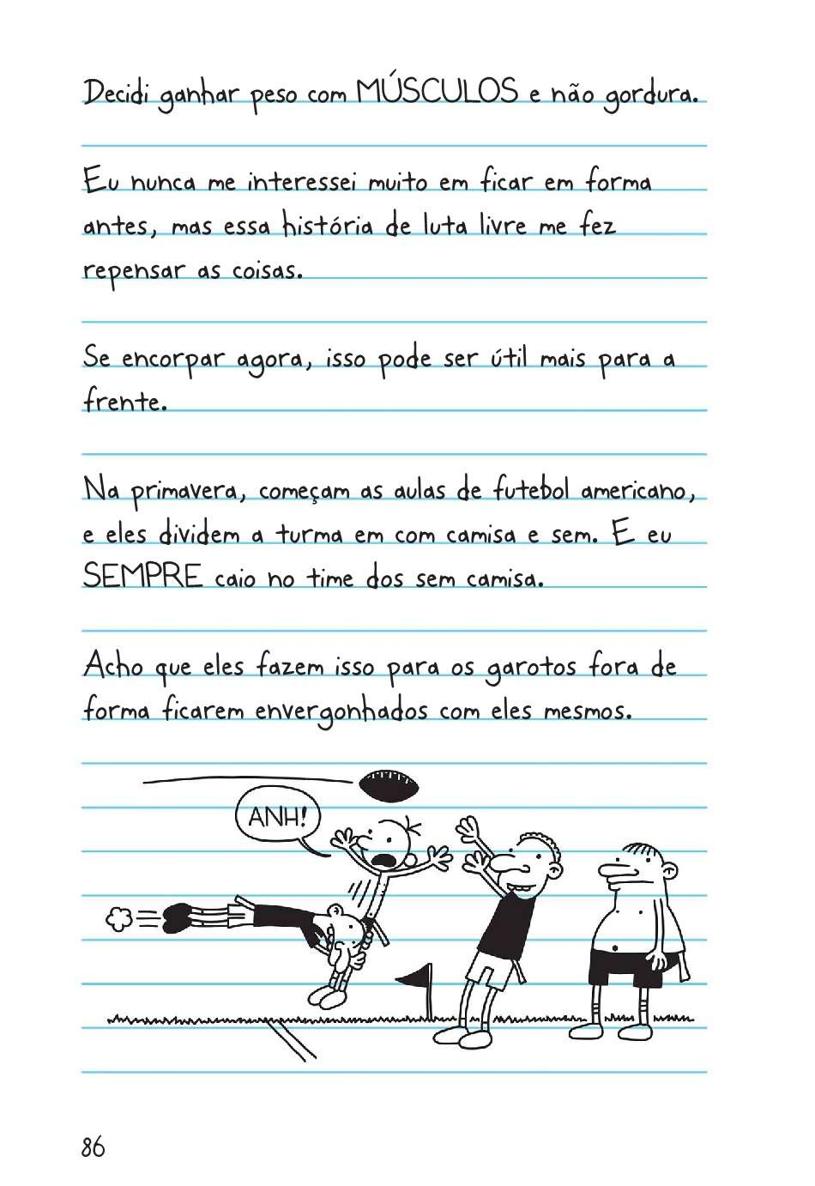 Decidi ganhar peso com MÚSCULOS e não gordura.
Eu nunca me interessei muito em ficar em forma
antes, mas essa história de luta livre me fez
repensar as coisas.
Se encorpar agora, isso pode ser útil mais para a
frente.
Na primavera, começam as aulas de futebol americano,
e eles dividem a turma em com camisa e sem. E eu
SEMPRE caio no time dos sem camisa.
Acho que eles fazem isso para os garotos fora de
forma ficarem envergonhados com eles mesmos.
ANH!
86